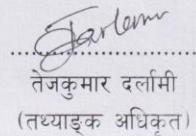 तेजकुमार दर्लामी
(तथ्याङ्क अधिकृत)